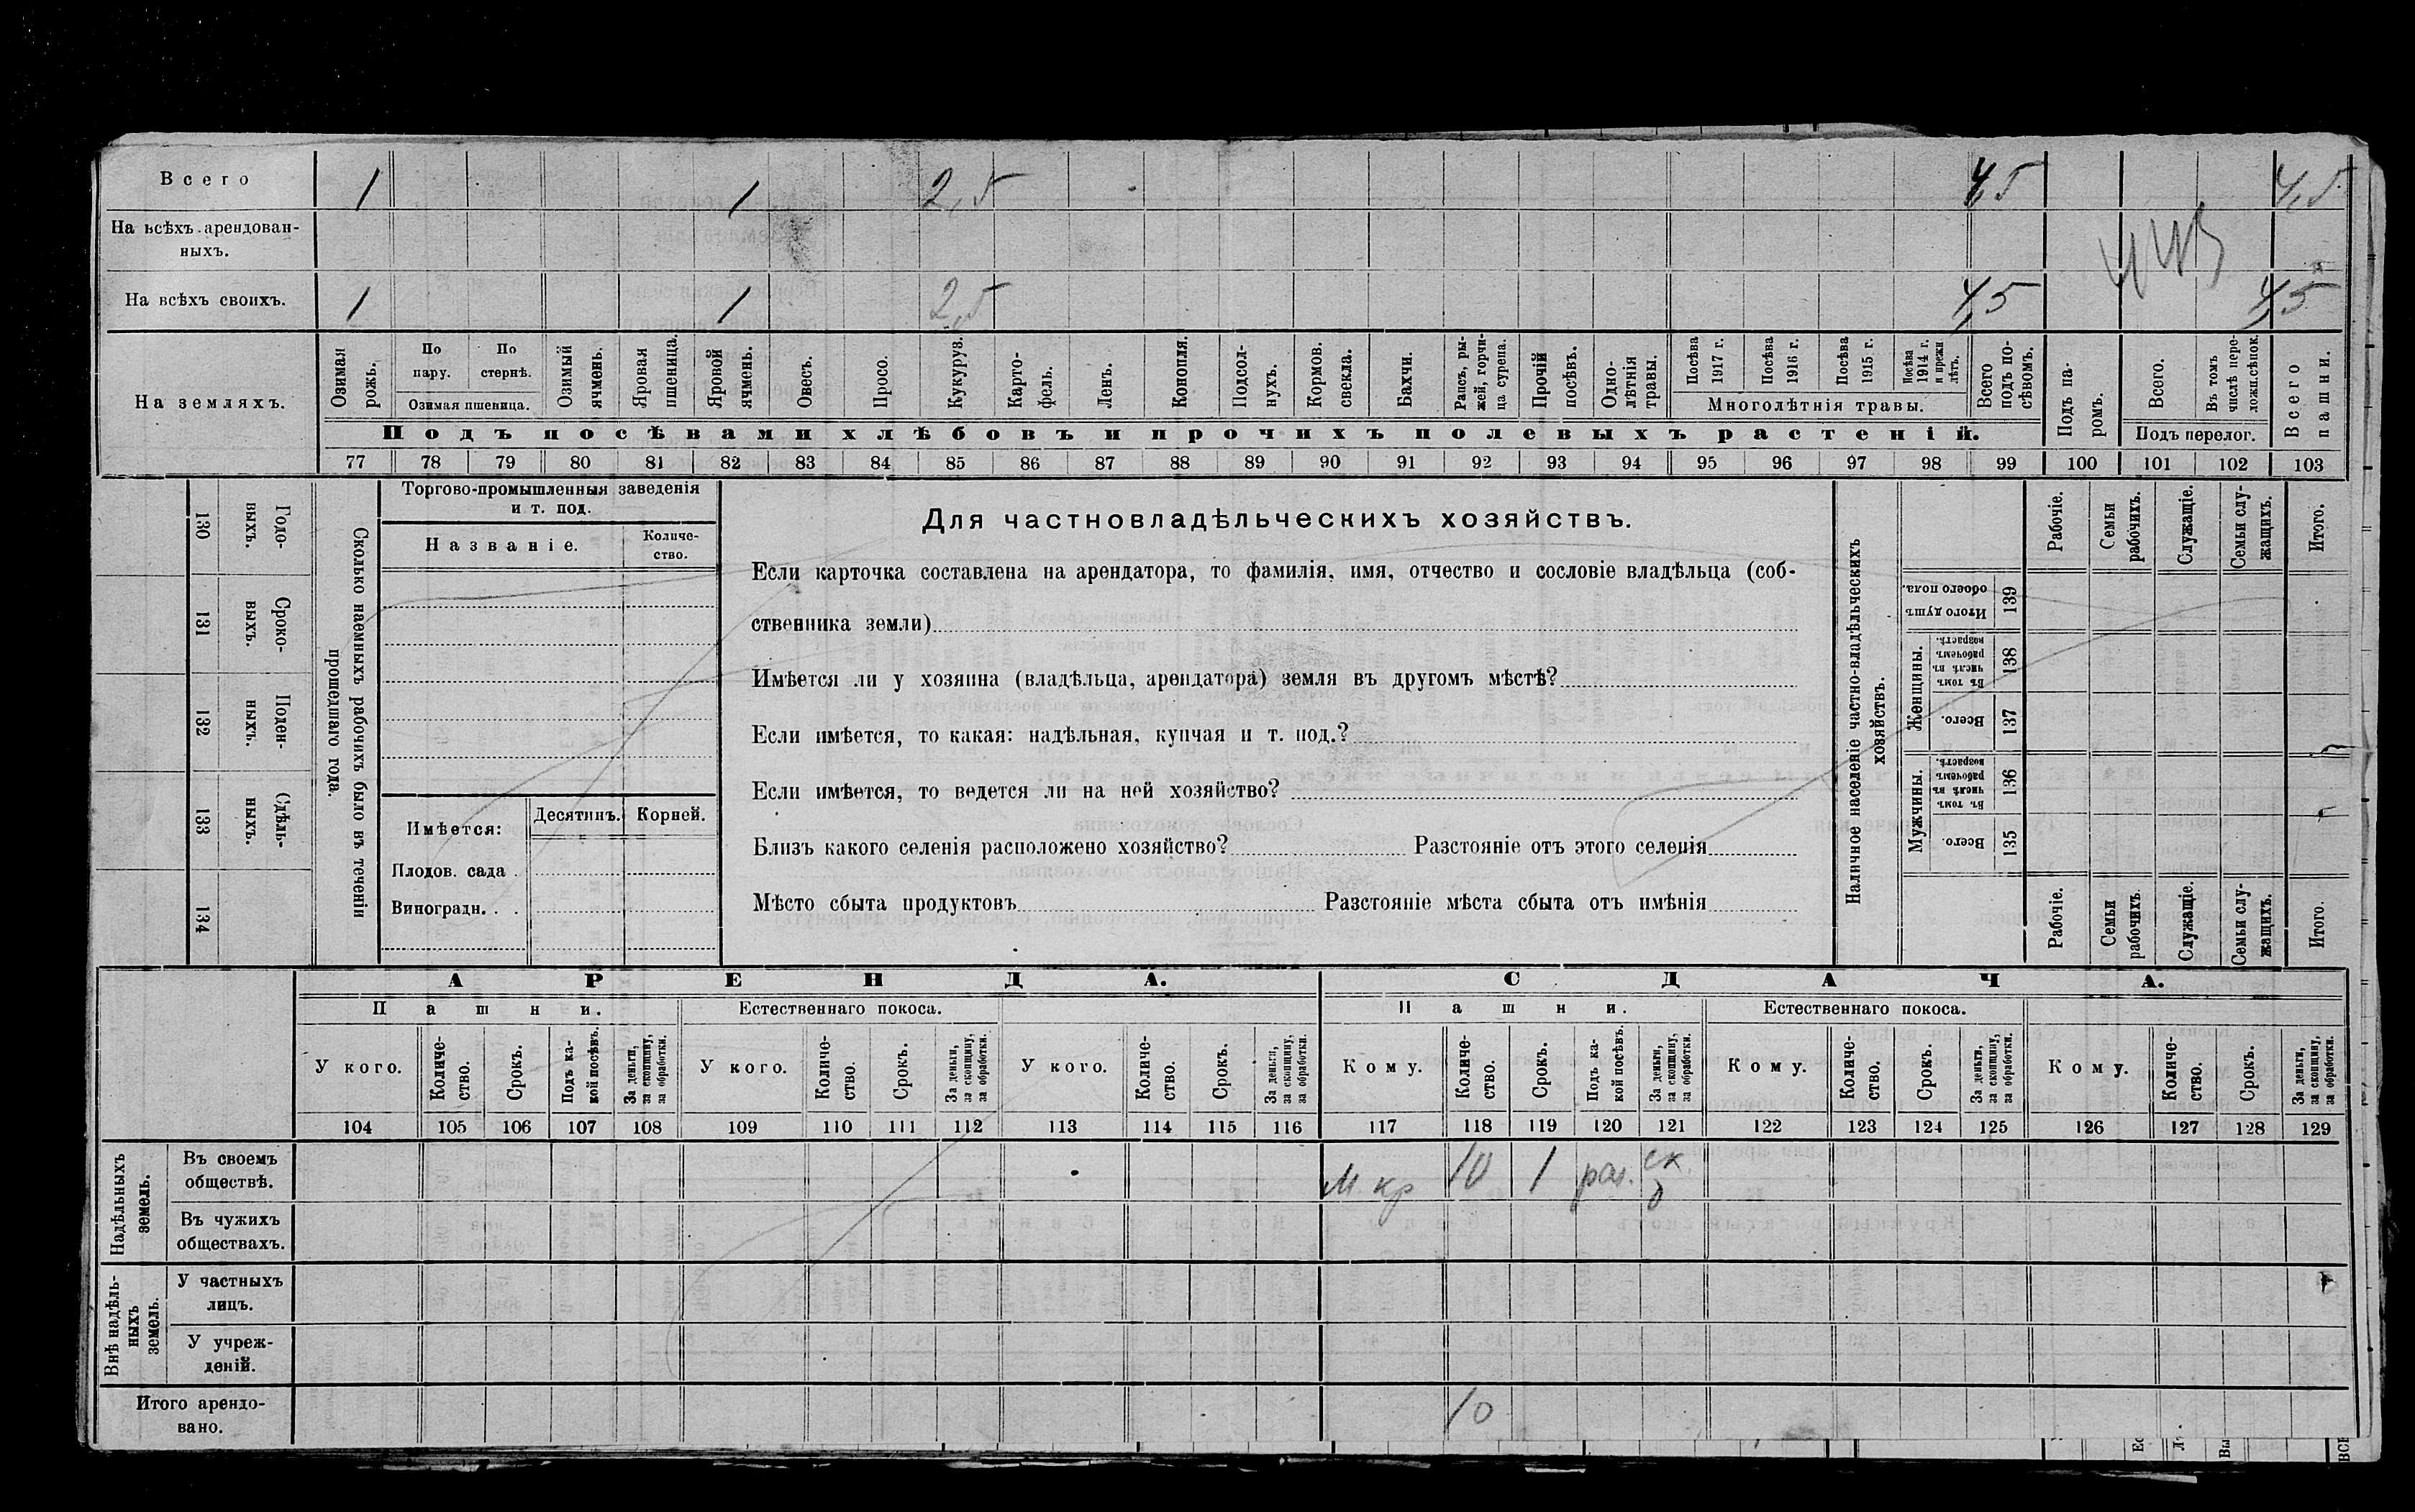 Всего 1 1 2,5 4,5 4,5
На всѣхъ арендован-
ныхъ.
На всѣхъ своихъ. 1 1 2,5 4,5 4,5
На земляхъ.
Озимая рожь.
По пару.
По стернѣ.
Озимая пшеница.
Озимый ячмень.
Яровая пшеница.
Яровой ячмень.
Овесъ.
Просо.
Кукуруз.
Карто-
фель.
Ленъ.
Конопля.
Подсол-
нухъ.
Кормов.
свекла.
Бахчи.
Рапсъ, ры-
жей, горчи-
ца сурепа.
Прочій
посѣвъ.
Одно-
лѣтнія
травы.
Посѣва
1917 г.
Посѣва
1916 г.
Посѣва
1915 г.
Посѣва
1914 г.
и прежн
лѣтъ.
Многолѣтнія травы.
Всего
подъ по-
сѣвомъ.
Подъ па-
ромъ.
Всего.
Въ томъ
числѣ пере-
ложн.сѣнок.
Подъ перелог.
Всего
пашни.
Подъ посѣвами хлѣбовъ и прочихъ полевыхъ растеній.
77 78 79 80 81 82 83 84 85 86 87 88 89 90 91 92 93 94 95 96 97 98 99 100 101 102 103
130 Годо-
выхъ.
131 Сроко-
выхъ.
132 Поден-
ныхъ.
133 Сдѣль-
ныхъ.
134
Сколько наемныхъ рабочихъ было въ теченіи
прошедшаго года.
Торгово-промышленныя заведенія
и т. под.
Названіе.
Количе-
ство.
Имѣется:
Десятинъ.
Корней.
Плодов. сада .
Виноградн. . .
Для частновладѣльческихъ хозяйствъ.
Если карточка составлена на арендатора, то фамилія, имя, отчество и сословіе владѣльца (соб-
ственника земли)
Имѣется ли у хозяина (владѣльца, арендатора) земля въ другомъ мѣстѣ?
Если имѣется, то какая: надѣльная, купчая и т. под.?
Если имѣется, то ведется ли на ней хозяйство?
Близъ какого селенія расположено хозяйство? Разстояніе отъ этого селенія
Мѣсто сбыта продуктовъ Разстояніе мѣста сбыта отъ имѣнія
Наличное населеніе частно-владѣльческихъ
хозяйствъ.
Рабочіе.
Семьи
рабочихъ.
Служащіе.
Семьи слу-
жащихъ.
Итого.
Итого душъ
обоего пола.
139
Женщины.
Въ томъ
числѣ въ
рабочемъ
возрастѣ.
138
Всего.
137
Мужчины.
Въ томъ
числѣ въ
рабочемъ
возрастѣ.
136
Всего.
135
Рабочіе.
Семьи
рабочихъ.
Служащіе.
Семьи слу-
жащихъ.
Итого.
АРЕНДА. СДАЧА.
Пашни. Естественнаго покоса. Пашни. Естественнаго покоса.
У кого.
Количе-
ство.
Срокъ.
Подъ ка-
кой посѣвъ.
За деньги,
за скопщину,
за обработки.
У кого.
Количе-
ство.
Срокъ.
За деньги,
за скопщину,
за обработки.
У кого.
Количе-
ство.
Срокъ.
За деньги,
за скопщину,
за обработки.
Кому.
Количе-
ство.
Срокъ.
Подъ ка-
кой посѣвъ.
За деньги,
за скопщину,
за обработки.
Кому.
Количе-
ство.
Срокъ.
За деньги,
за скопщину,
за обработки.
Кому.
Количе-
ство.
Срокъ.
За деньги,
за скопщину,
за обработки.
104 105 106 107 108 109 110 111 112 113 114 115 116 117 118 119 120 121 122 123 124 125 126 127 128 129
Надѣльныхъ
земель.
Въ своемъ
обществѣ.
М кр 10 1 раз. ск.
Въ чужихъ
обществахъ.
Внѣ надѣль-
ныхъ
земель.
У частныхъ
лицъ.
У учреж-
деній.
Итого арендо-
вано.
10